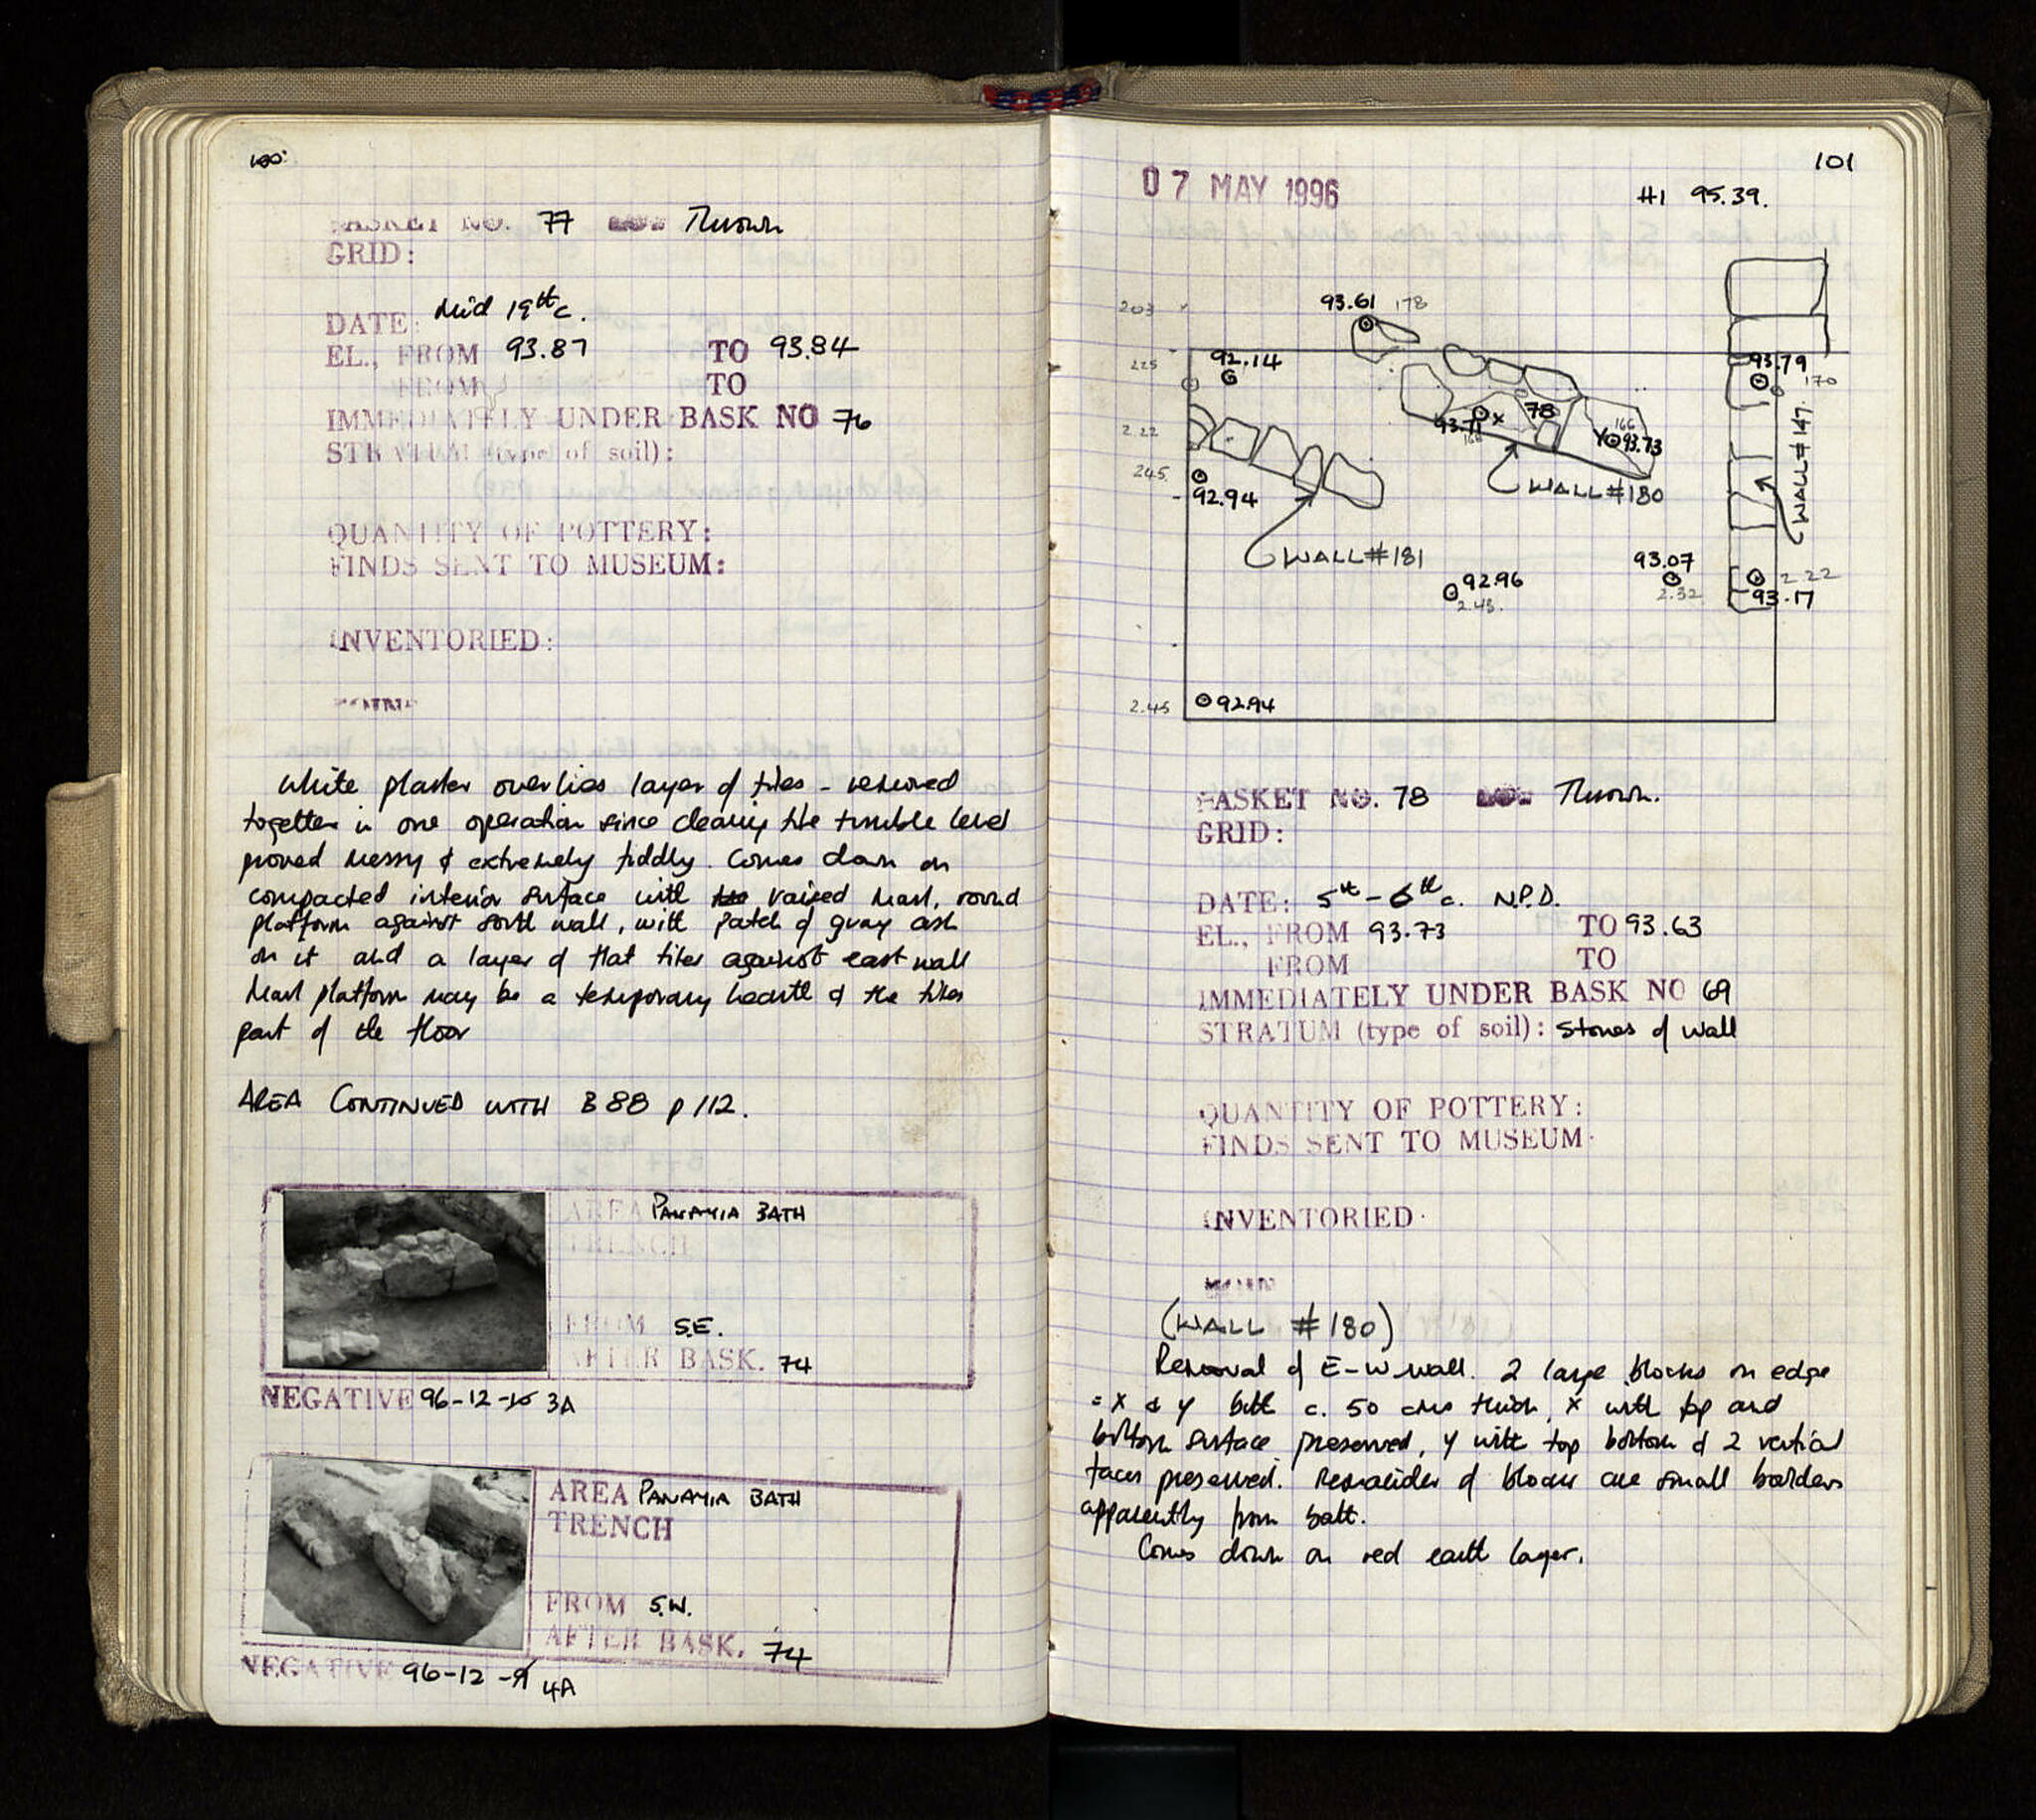 100
BASKET NO. 77 Thrown
GRID:
DATE: Mid 19th c.
EL., FROM 93.87 TO 93.84
FROM TO
IMMEDIATELY UNDER BASK NO 76
STRATUM (type of soil):
QUANTITY OF POTTERY:
FINDS SENT TO MUSEUM:
INVENTORIED:
White plaster overlies layer of tiles - removed
together in one operation since clearing the tumble level
proved messy & extremely fiddly. Comes down on
compacted interior surface with raised marl, round
platform against south wall, with patch of gray ash
on it and a layer of flat tiles against east wall
Marl platform may be a temporary hearth & the tiles
part of the floor
AREA CONTINUED WITH B 88 p 112.
AREA PANAYIA BATH
TRENCH
FROM S.E.
AFTER BASK. 74
NEGATIVE 96-12- 3A
AREA PANAYIA BATH
TRENCH
FROM S.W.
AFTER BASK. 74
NEGATIVE 96-12- 4A
101
07 MAY 1996
HI 95.39.
203
93.61 178
225
92.14
93.79
170
78
93.71 X
168
166
Y 93.73
2.22
245
92.94
WALL #180
WALL #147
WALL #181
93.07
2.32
92.96
2.43.
2.22
93.17
2.45
92.94
BASKET NO. 78 Thrown.
GRID:
DATE: 5th - 6th c. N.P.D.
EL., FROM 93.73 TO 93.63
FROM TO
IMMEDIATELY UNDER BASK NO 69
STRATUM (type of soil): Stones of wall
QUANTITY OF POTTERY:
FINDS SENT TO MUSEUM
INVENTORIED
(WALL #180)
Removal of E-W wall. 2 large blocks on edge
= X & Y both c. 50 cms thick, X with top and
bottom surface preserved, Y with top bottom & 2 vertical
faces preserved. Remainder of blocks are small boulders
apparently from bath.
Comes down on red earth layer.